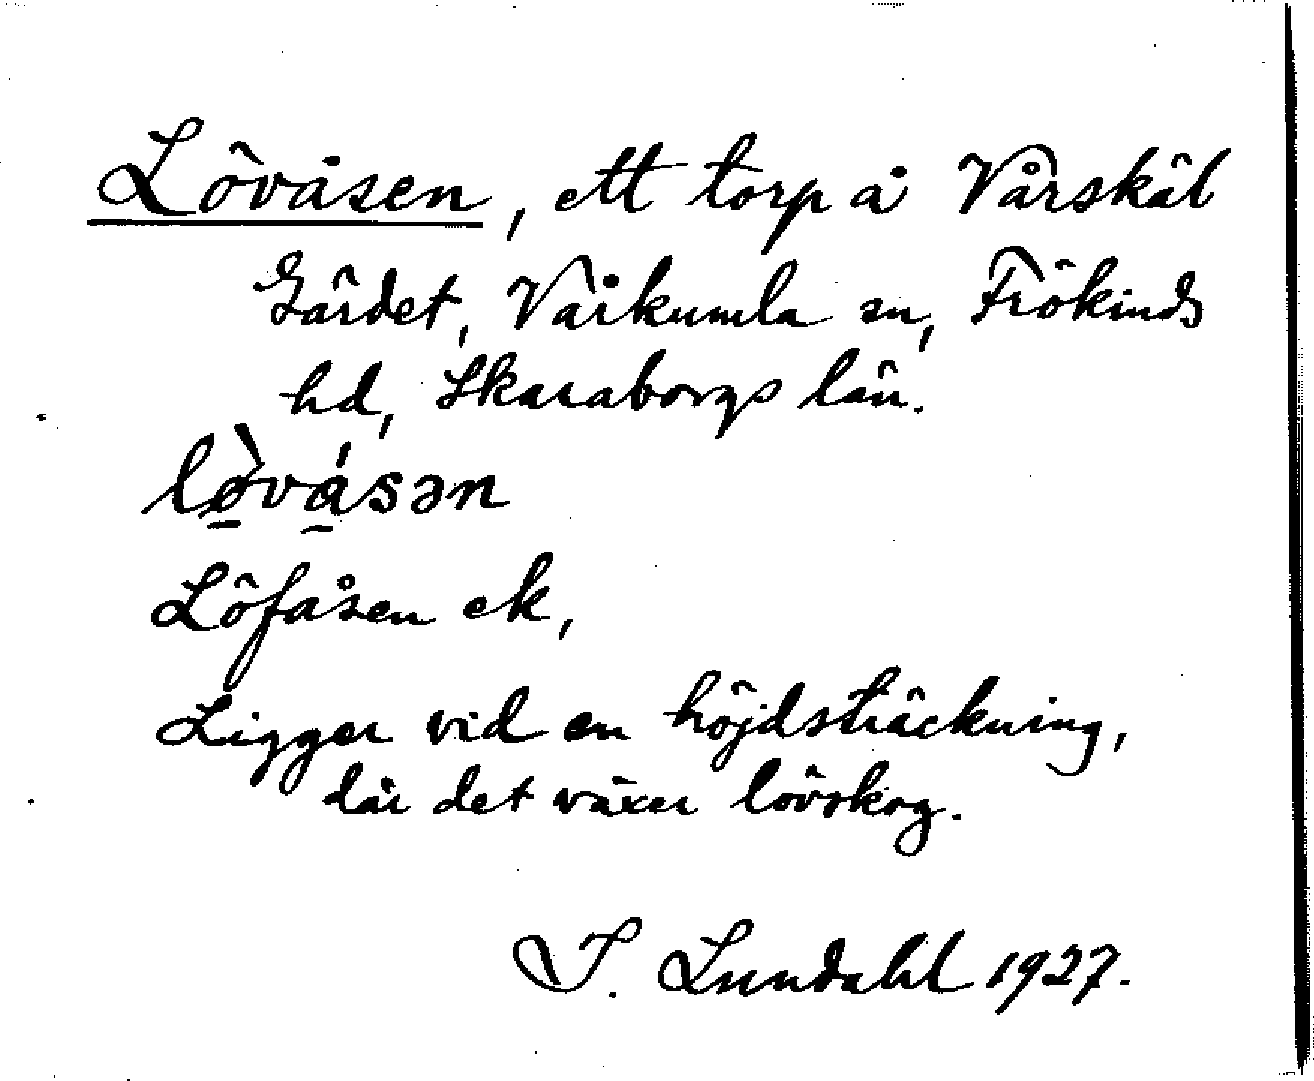 Lövåsen, ett torp å Vårskäl
Gärdet, Vårkumla sn, Frökinds
hd, Skaraborgs län.
lø̠̀vá̠sən
Löfåsen ek,
Ligger vid en höjdsträckning,
där det växer lövskog.
I. Lundahl 1927.